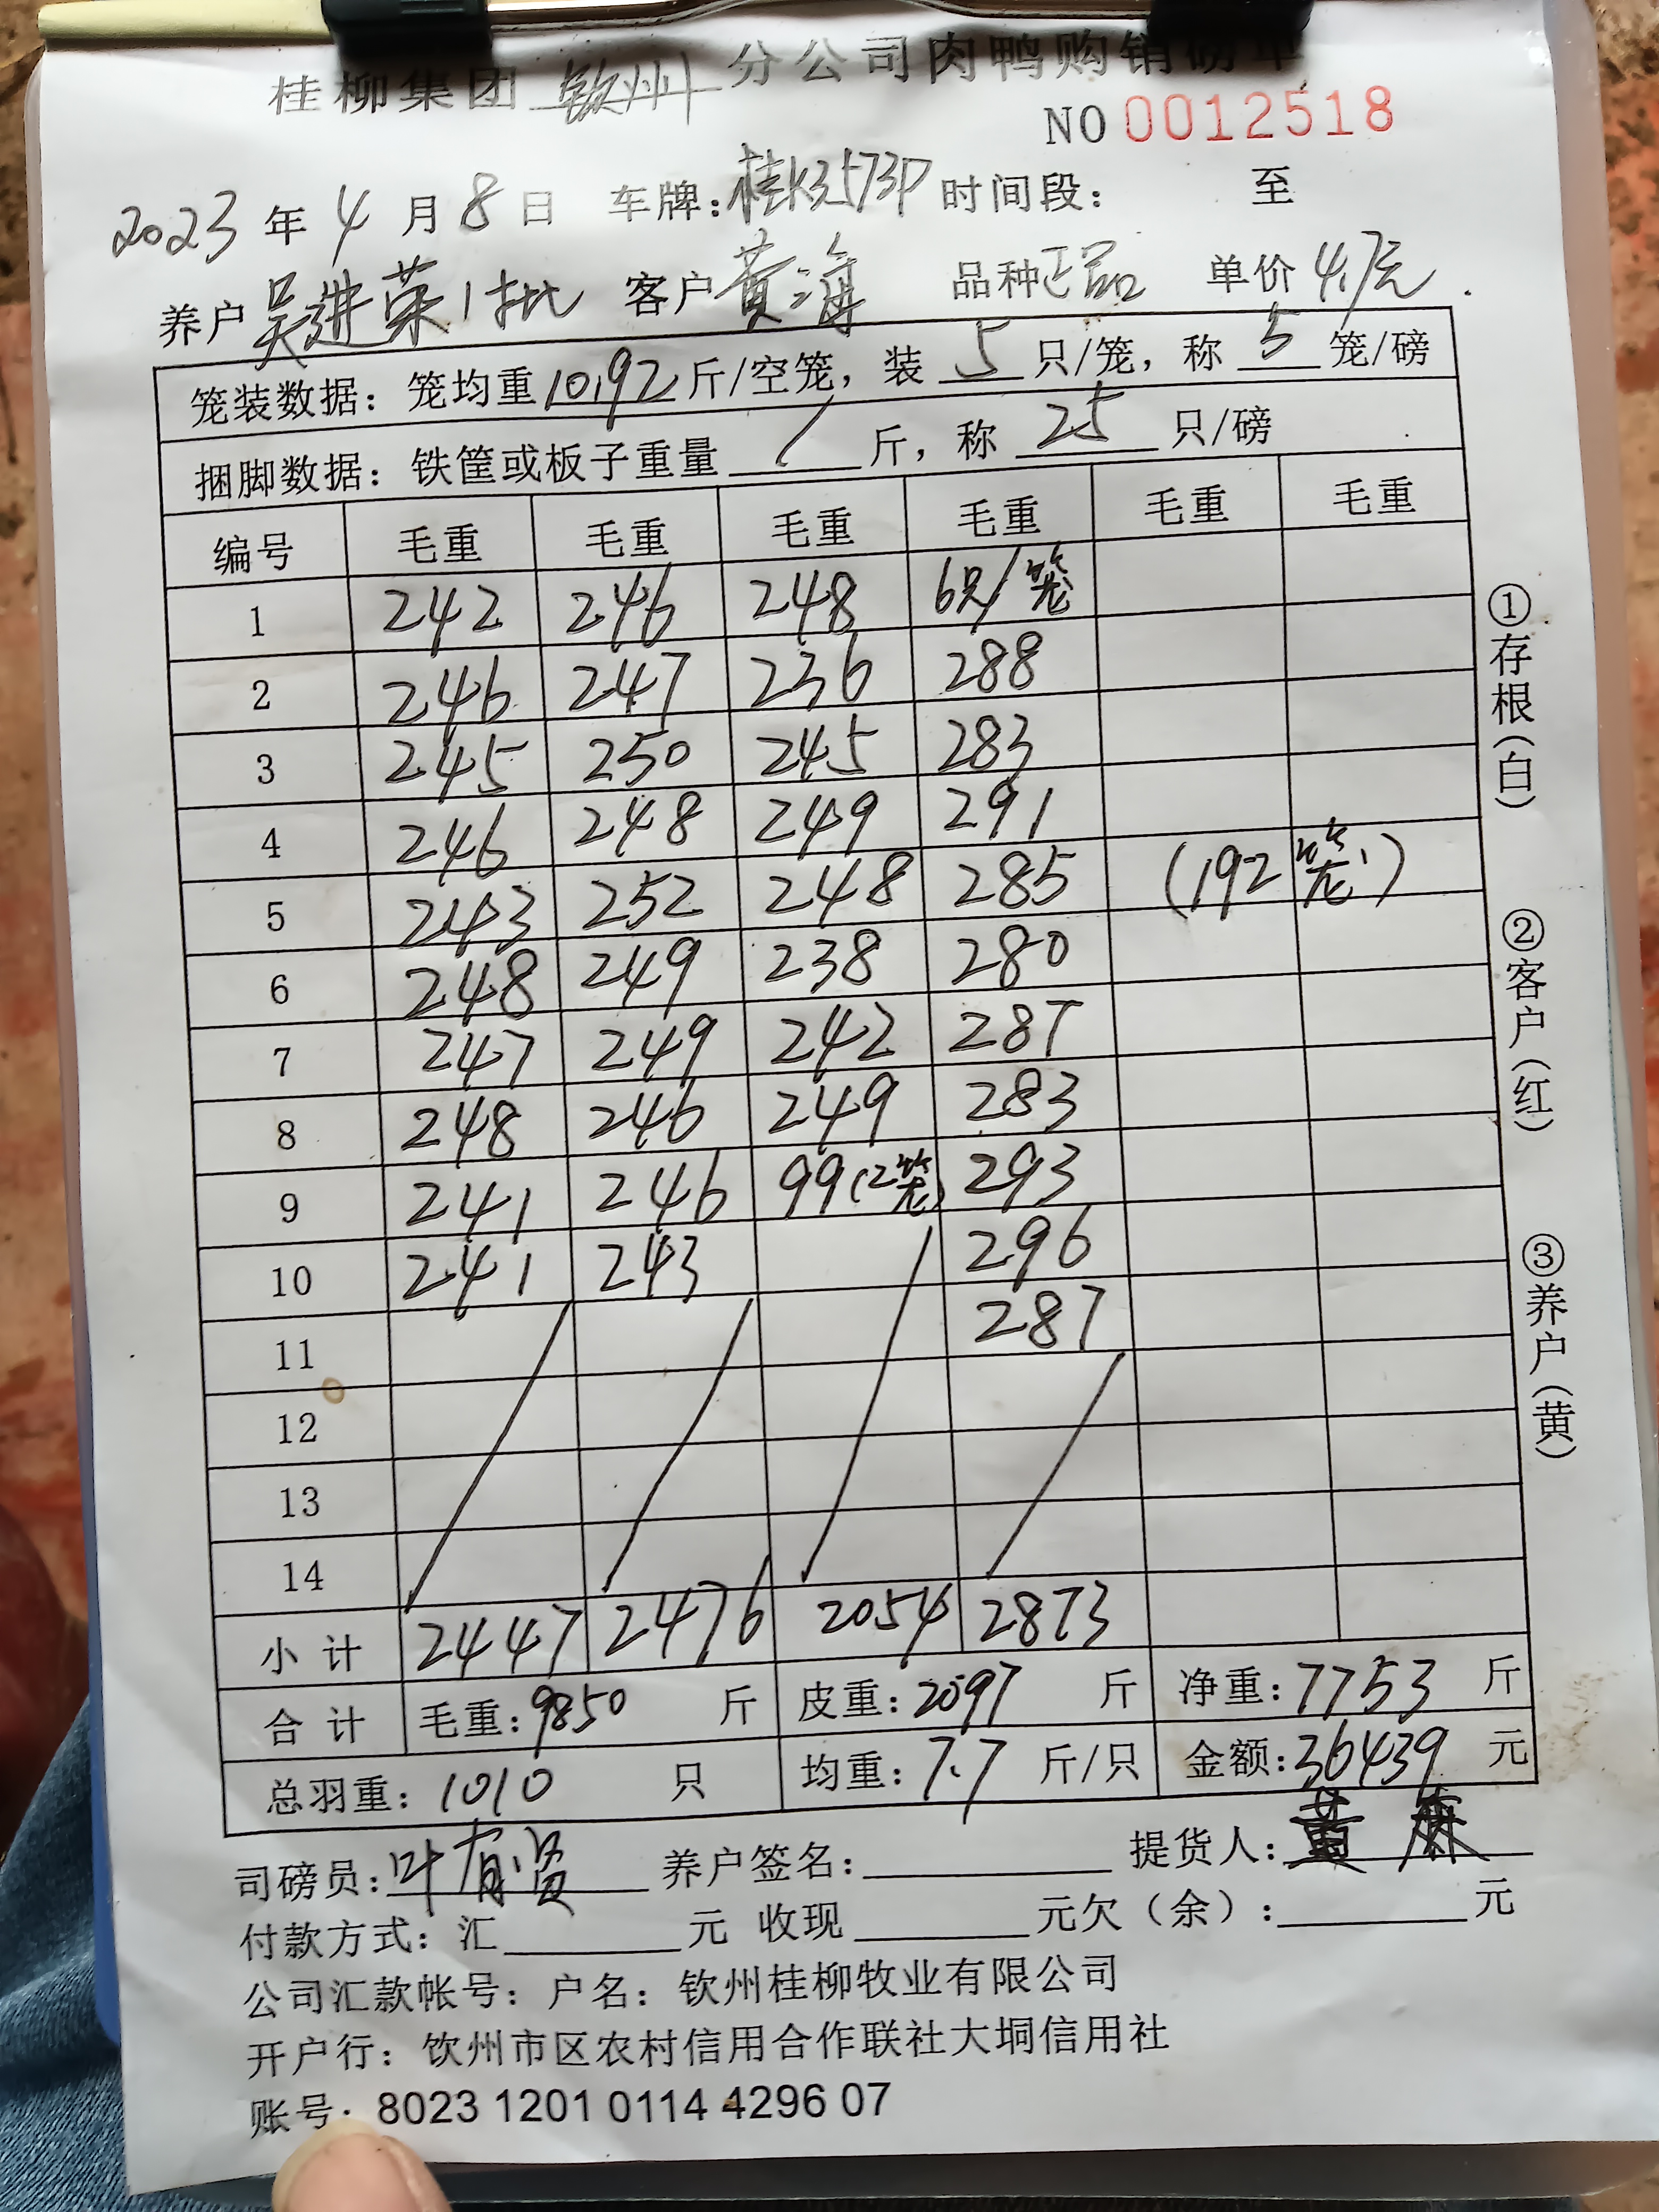 桂柳集团 钦州 分公司肉鸭购销磅单
NO 0012518
2023 年 4 月 8 日 车牌:桂K3573P 时间段: 至
养户 吴进荣1批 客户 黄海 品种 正品 单价 4.7元
笼装数据: 笼均重 10.92 斤/空笼, 装 5 只/笼, 称 5 笼/磅
捆脚数据: 铁筐或板子重量 / 斤, 称 25 只/磅
编号 毛重 毛重 毛重 毛重 毛重 毛重
1 242 246 248 6只/笼
2 246 247 236 288
3 245 250 245 283
4 246 248 249 291
5 243 252 248 285 (192笼)
6 248 249 238 280
7 247 249 242 287
8 248 246 249 283
9 241 246 99(2笼) 293
10 241 243 296
11 287
12
13
14
小计 2447 2476 2054 2873
合计 毛重: 9850 斤 皮重: 2097 斤 净重: 7753 斤
总羽重: 1010 只 均重: 7.7 斤/只 金额: 36439 元
司磅员: 叶有贤 养户签名: 提货人: 黄
付款方式: 汇 元 收现 元欠(余): 元
公司汇款帐号: 户名: 钦州桂柳牧业有限公司
开户行: 钦州市区农村信用合作联社大垌信用社
账号: 8023 1201 0114 4296 07
①存根(白)
②客户(红)
③养户(黄)